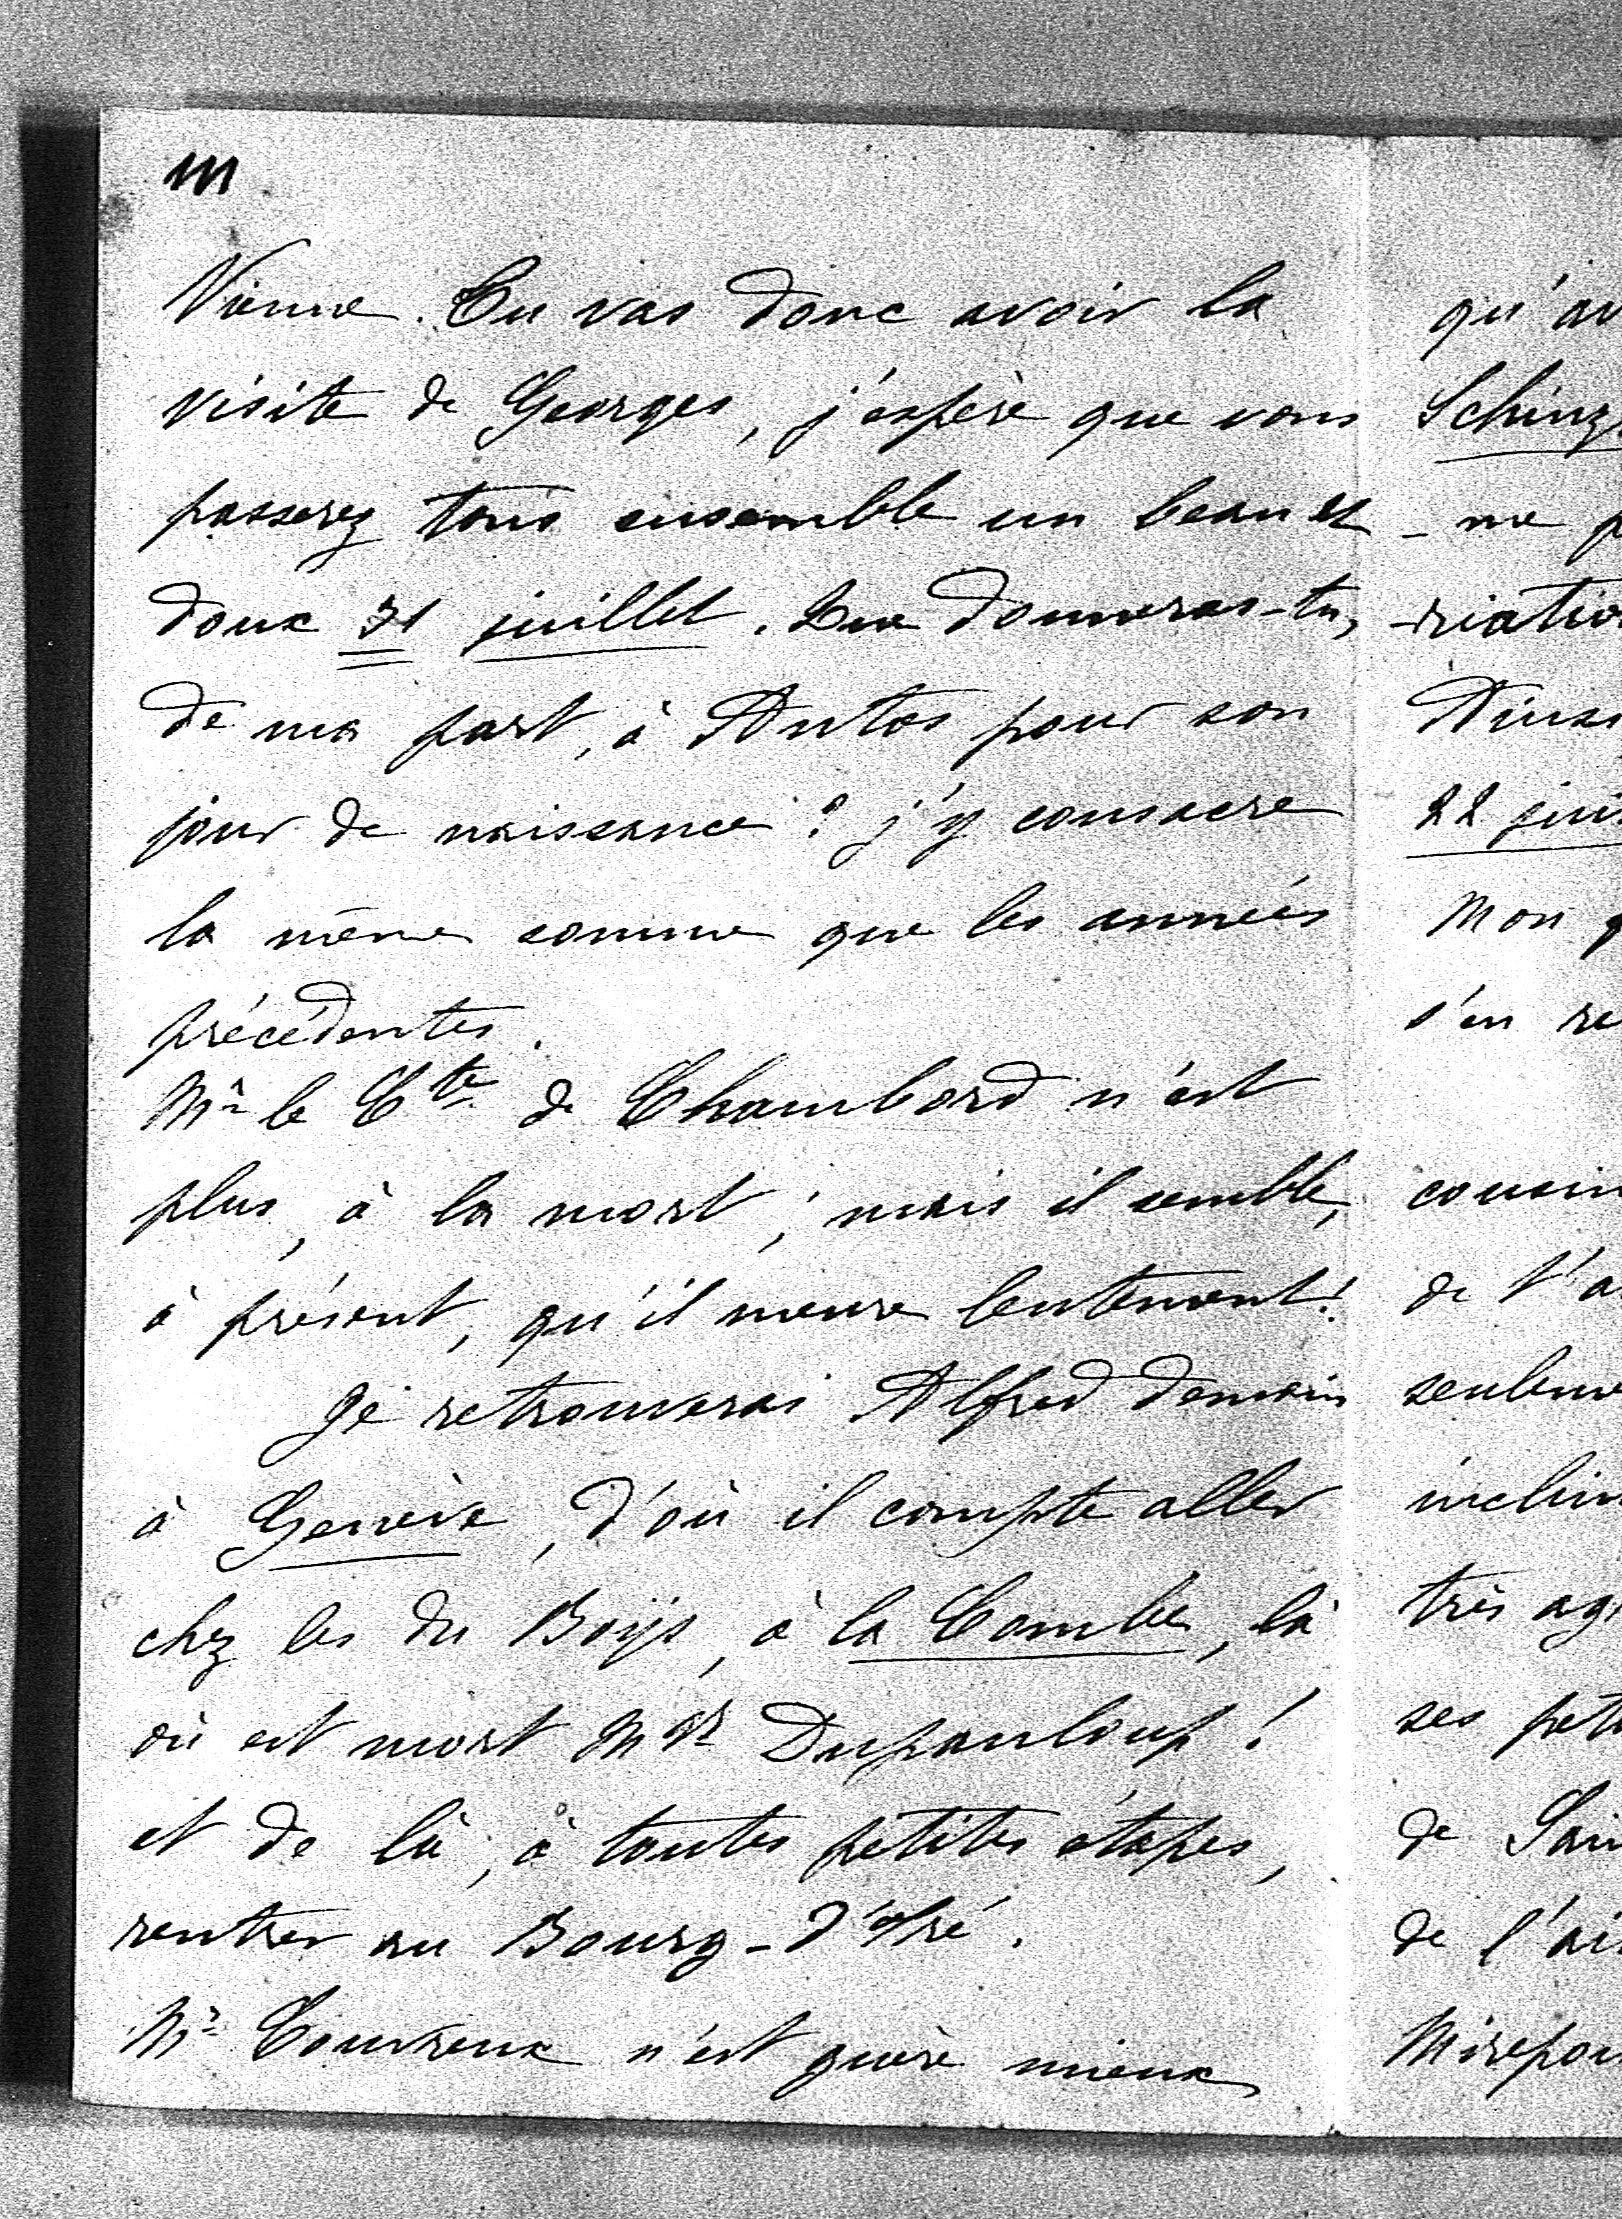 III
Vienne. Tu vas donc avoir la
visite de Georges, j'espère que vous
passerez tous ensemble un beau et
doux 31 juillet. Que donneras-tu,
de ma part, à Antos pour son
jour de naissance ? j'y consacre
la même somme que les années
précédentes.
Mr le Cte de Chambord n'est
plus, à la mort ; mais il semble,
à présent, qu'il meure lentement !
Je retrouverai Alfred demain
à Genève, d'où il compte aller
chez les du Boÿs, à la Combe, là
où est mort Mgr Dupanloup !
et de là, à toutes petites étapes,
rentrer au Bourg-d'Iré.
Mr Couvreux n'est guère mieux
qu'av
Schinz
- me p
-riatio
Ainsi
22 jui
Mon g
s'en re
cousin
de t'a
seuleme
inclin
très ag
ses peti
de Sai
de l'ai
Mirepoi